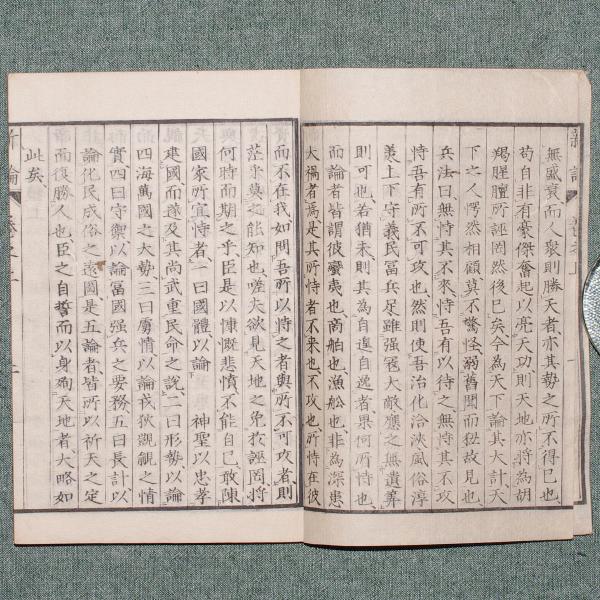 無盛衰而人衆則勝天者亦其勢之所不得已也
苟自非有豪傑奮起以亮天功則天地亦將為胡
羯腥膻所誣罔然後已矣今為天下論其大計天
下之人愕然相顧莫不驚怪溺舊聞而狃故見也
兵法曰無恃其不來恃吾有以待之無恃其不攻
恃吾有所不可攻也然則使吾治化洽浹風俗淳
美上下守義民富兵足雖强寇大敵應之無遺算
則可也若猶未則其為自遑自逸者果何所恃也
而論者皆謂彼蠻夷也商舶也漁舩也非為深患
大禍者焉是其所恃者不來也不攻也所恃在彼
而不在我如問吾所以恃之者與所不可攻者則
茫乎莫之能知也嗟夫欲見天地之免於誣罔將
何時而期之乎臣是以慷慨悲憤不能自已敢陳
國家所宜恃者一曰國體以論　神聖以忠孝
建國而遂及其尚武重民命之說二曰形勢以論
四海萬國之大勢三曰虜情以論戎狄覬覦之情
實四曰守禦以論富國强兵之要務五曰長計以
論化民成俗之遠圖是五論者皆所以祈天之定
而復勝人也臣之自誓而以身殉天地者大略如
此矣
新論